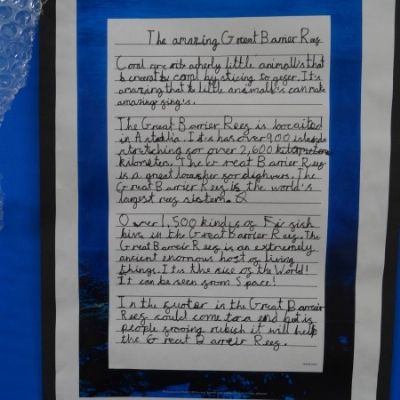 The amazing Great Barrier Reeg
Coral are acherly little animalls that
is creeat by coral by sticing to geser. It's
amazing that little animalls can make
amazing
The Great Barrier Reeg is locaited
in It's has over 900 islands
stretching gor over 2,600 kilometers
kilometers. The Great Barrier Reeg
is a great locasher gor dighvers. The
Great Barrier Reeg is the world's
largest reeg sistem.
Over 1,500 kinds og Fir gish
live in the Great Barrier Reeg. The
Great Barreir Reeg is an extremely
ancient enormous host og living
things. It's the sise og the World!
It can be seen grom Space!
In the guoter in the Great Barreir
Reeg could come to a end but ig
people grooing rubish it will help
the Great Barreir Reeg.